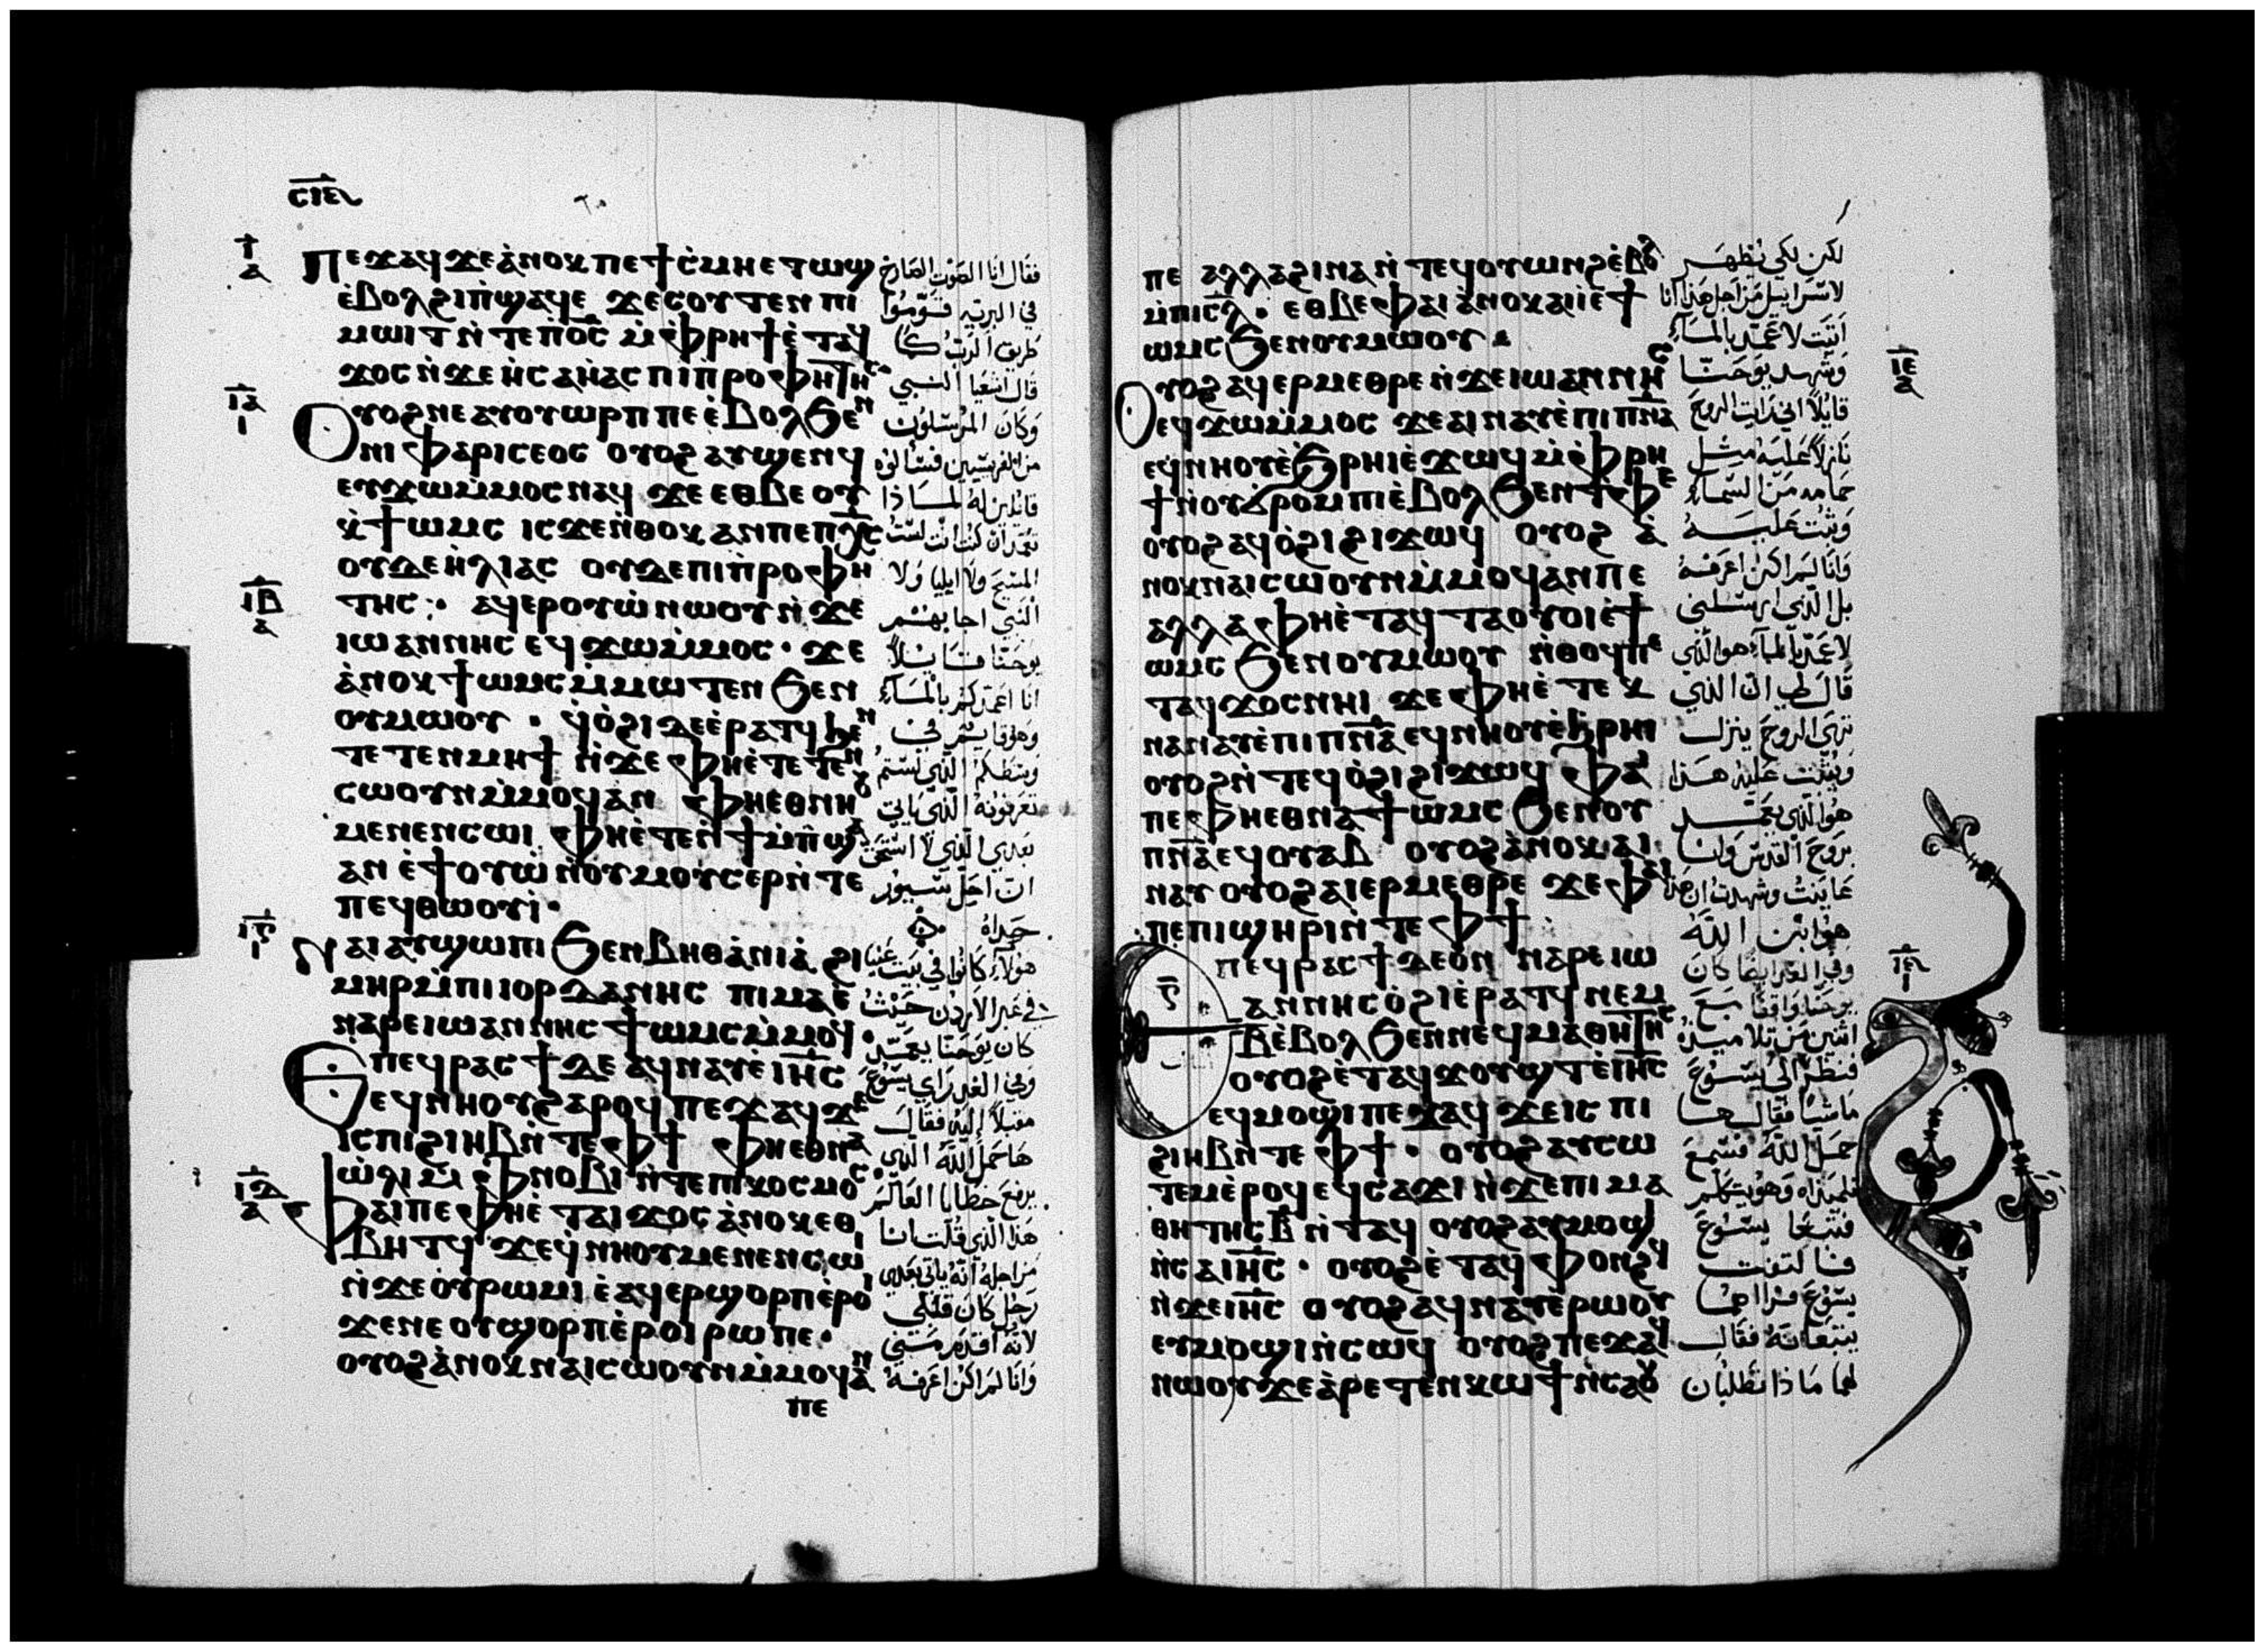 ⲥⲓⲋ
ⲓ̅
ⲁ
Ⲡⲉϫⲁϥ ϫⲉ ⲁ̀ⲛⲟⲕ ⲡⲉ ϯⲥ̀ⲙⲏ ⲉⲧⲱϣ
ⲉ̀ⲃⲟⲗ ϩⲓ ⲡ̀ϣⲁϥⲉ ϫⲉ ⲥⲟⲩⲧⲉⲛ ⲡⲓ
ⲙⲱⲓⲧ ⲛ̀ⲧⲉ ⲡⲟ̅ⲥ̅ ⲙ̀ⲫⲣⲏϯ ⲉ̀ⲧⲁϥ
ϫⲟⲥ ⲛ̀ϫⲉ ⲏ̀ⲥⲁⲏ̀ⲁⲥ ⲡⲓⲡ̀ⲣⲟⲫⲏⲧⲏⲥ
ⲓ̅ⲁ̅
ⲓ
Ⲟⲩⲟϩ ⲛⲉ ⲁⲩⲟⲩⲱⲣⲡ ⲡⲉ ⲉ̀ⲃⲟⲗ ϧⲉⲛ
ⲛⲓⲫⲁⲣⲓⲥⲉⲟⲥ ⲟⲩⲟϩ ⲁⲩϣⲉⲛϥ
ⲉⲩϫⲱ ⲙ̀ⲙⲟⲥ ⲛⲁϥ ϫⲉ ⲉⲑⲃⲉ ⲟⲩ
ⲭ̀ϯⲱⲙⲥ ⲓⲥϫⲉ ⲛ̀ⲑⲟⲕ ⲁⲛ ⲡⲉ ⲡⲭ̅ⲥ̅
ⲟⲩⲇⲉ ⲏ̀ⲗⲓⲁⲥ ⲟⲩⲇⲉ ⲡⲓⲡ̀ⲣⲟⲫⲏ
ⲓ̅ⲃ̅
ⲁ
ⲧⲏⲥ ⁘ ⲁϥⲉⲣⲟⲩⲱ̀ ⲛⲱⲟⲩ ⲛ̀ϫⲉ
ⲓⲱⲁⲛⲛⲏⲥ ⲉϥϫⲱ ⲙ̀ⲙⲟⲥ · ϫⲉ
ⲁ̀ⲛⲟⲕ ϯⲱⲙⲥ ⲙ̀ⲙⲱⲧⲉⲛ ϧⲉⲛ
ⲟⲩⲙⲱⲟⲩ · ϥ̀ⲟ̀ϩⲓ ⲇⲉ ⲉ̀ⲣⲁⲧϥ ϧⲉⲛ
ⲧⲉⲧⲉⲛⲙⲏϯ ⲛ̀ϫⲉ ⲫⲏⲉ̀ⲧⲉⲧⲉⲛ
ⲥⲱⲟⲩⲛ ⲙ̀ⲙⲟϥ ⲁⲛ ⲫⲏⲉⲑⲛⲏⲟⲩ
ⲙⲉⲛⲉⲛⲥⲱⲓ ⲫⲏⲉ̀ⲧⲉⲛ̀ϯⲙ̀ⲡ̀ϣⲁ
ⲁⲛ ⲉ̀ϯⲟⲩⲱ̀ ⲛ̀ⲟⲩⲙⲟⲩⲥⲉⲣ ⲛ̀ⲧⲉ
ⲡⲉϥⲑⲱⲟⲩⲓ̀ ·
ⲓ̅ⲅ̅
ⲓ
Ⲛⲁⲓ ⲁⲩϣⲱⲡⲓ ϧⲉⲛ ⲃⲏⲑⲁ̀ⲛⲓⲁ̀ ϩⲓ
ⲙⲏⲣ ⲙ̀ⲡⲓⲓⲟⲣⲇⲁⲛⲏⲥ ⲡⲓⲙⲁ ⲉ̀
ⲛⲁⲣⲉ ⲓⲱⲁⲛⲛⲏⲥ ϯⲱⲙⲥ ⲙ̀ⲙⲟϥ ·
Ⲉⲡⲉϥⲣⲁⲥϯ ⲇⲉ ⲁϥⲛⲁⲩ ⲉ̀ⲓⲏ̅ⲥ̅
ⲉϥⲛⲏⲟⲩ ϩⲁⲣⲟϥ ⲡⲉϫⲁϥ ϫⲉ
ⲓⲥ ⲡⲓϩⲓⲏⲃ ⲛ̀ⲧⲉ ⲫϯ ⲫⲏⲉⲑⲛⲁ
ⲱ̀ⲗⲓ ⲙ̀ⲫⲛⲟⲃⲓ ⲛ̀ⲧⲉ ⲡⲓⲕⲟⲥⲙⲟⲥ
ⲓ̅ⲇ̅
ⲁ
Ⲫⲁⲓ ⲡⲉ ⲫⲏⲉ̀ⲧⲁⲓϫⲟⲥ ⲁ̀ⲛⲟⲕ ⲉⲑ
ⲃⲏⲧϥ ϫⲉ ϥ̀ⲛⲏⲟⲩ ⲙⲉⲛⲉⲛⲥⲱⲓ
ⲛ̀ϫⲉ ⲟⲩⲣⲱⲙⲓ ⲉ̀ⲁϥⲉⲣϣⲟⲣⲡ ⲉ̀ⲣⲟⲓ
ϫⲉ ⲛⲉ ⲟⲩϣⲟⲣⲡ ⲉ̀ⲣⲟⲓ ⲣⲱ ⲡⲉ ·
ⲟⲩⲟϩ ⲁ̀ⲛⲟⲕ ⲛⲁⲓⲥⲱⲟⲩⲛ ⲙ̀ⲙⲟϥ ⲁⲛ
ⲡⲉ
فقال انا الصوت الصارخ
في البرية قوموا
طريق الرب كما
قال اشعيا النبي
وكان المرسلون
من الفريسيين فسالوه
قايلين له لماذا
تعمد ان كنت انت لست
المسيح ولا ايليا ولا
النبي اجابهم
يوحنا قايلاً
انا اعمدكم بالماء
وهوذا يقيم في
وسطكم الذي لستم
تعرفونه الذي ياتي
بعدي الذي لا استحق
ان احل سيور
حذاه
هولاء كانوا في بيت عنيا
في عبر الاردن حيث
كان يوحنا يعمد
وفي الغد راي يسوع
مقبلاً اليه فقال
ها حمل الله الذي
يرفع خطايا العالم
هذا الذي قلت انا
من اجله انه ياتي بعدي
رجل كان قبلي
لانه اقدم مني
وانا لم اكن اعرفه
ⲡⲉ ⲁⲗⲗⲁ ϩⲓⲛⲁ ⲛ̀ⲧⲉϥⲟⲩⲱⲛϩ ⲉ̀ⲃⲟⲗ
ⲙ̀ⲡⲓⲥ̅ⲗ̅ · ⲉⲑⲃⲉ ⲫⲁⲓ ⲁ̀ⲛⲟⲕ ⲁⲓⲓ̀ ⲉ̀ϯ
ⲱⲙⲥ ϧⲉⲛ ⲟⲩⲙⲱⲟⲩ ·
ⲓ̅ⲉ̅
ⲁ
Ⲟⲩⲟϩ ⲁϥⲉⲣⲙⲉⲑⲣⲉ ⲛ̀ϫⲉ ⲓⲱⲁⲛⲛⲏⲥ
ⲉϥϫⲱ ⲙ̀ⲙⲟⲥ ϫⲉ ⲁⲓⲛⲁⲩ ⲉ̀ⲡⲓⲡ̅ⲛ̅ⲁ̅
ⲉϥⲛⲏⲟⲩ ⲉ̀ϧⲣⲏⲓ ⲉ̀ϫⲱϥ ⲙ̀ⲫⲣⲏ
ϯ ⲛ̀ⲟⲩϭⲣⲟⲙⲡⲓ ⲉ̀ⲃⲟⲗ ϧⲉⲛ ⲧⲫⲉ
ⲟⲩⲟϩ ⲁϥⲟ̀ϩⲓ ϩⲓϫⲱϥ ⲟⲩⲟϩ ⲁ̀
ⲛⲟⲕ ⲛⲁⲓⲥⲱⲟⲩⲛ ⲙ̀ⲙⲟϥ ⲁⲛ ⲡⲉ
ⲁⲗⲗⲁ ⲫⲏⲉ̀ⲧⲁϥⲧⲁⲟⲩⲟⲓ ⲉ̀ϯ
ⲱⲙⲥ ϧⲉⲛ ⲟⲩⲙⲱⲟⲩ ⲛ̀ⲑⲟϥ ⲡⲉ
ⲧⲁϥϫⲟⲥ ⲛⲏⲓ ϫⲉ ⲫⲏⲉ̀ⲧⲉⲕ
ⲛⲁⲛⲁⲩ ⲉ̀ⲡⲓⲡ̅ⲛ̅ⲁ̅ ⲉϥⲛⲏⲟⲩ ⲉ̀ϧⲣⲏⲓ
ⲟⲩⲟϩ ⲛ̀ⲧⲉϥⲟ̀ϩⲓ ϩⲓϫⲱϥ ⲫⲁⲓ
ⲡⲉ ⲫⲏⲉⲑⲛⲁϯⲱⲙⲥ ϧⲉⲛ ⲟⲩ
ⲡ̅ⲛ̅ⲁ̅ ⲉϥⲟⲩⲁⲃ ⲟⲩⲟϩ ⲁ̀ⲛⲟⲕ ⲁⲓ
ⲛⲁⲩ ⲟⲩⲟϩ ⲁⲓⲉⲣⲙⲉⲑⲣⲉ ϫⲉ ⲫⲁⲓ
ⲡⲉ ⲡⲓϣⲏⲣⲓ ⲛ̀ⲧⲉ ⲫϯ
ⲓ̅ⲋ̅
ⲓ
Ⲉⲡⲉϥⲣⲁⲥϯ ⲇⲉ ⲟⲛ ⲛⲁⲣⲉ ⲓⲱ
ⲁⲛⲛⲏⲥ ⲟ̀ϩⲓ ⲉ̀ⲣⲁⲧϥ ⲛⲉⲙ
ⲃ̅ ⲉ̀ⲃⲟⲗ ϧⲉⲛ ⲛⲉϥⲙⲁⲑⲏⲧⲏⲥ
ⲟⲩⲟϩ ⲉ̀ⲧⲁϥϫⲟⲩϣⲧ ⲉ̀ⲓⲏ̅ⲥ̅
ⲉϥⲙⲟϣⲓ ⲡⲉϫⲁϥ ϫⲉ ⲓⲥ ⲡⲓ
ϩⲓⲏⲃ ⲛ̀ⲧⲉ ⲫϯ · ⲟⲩⲟϩ ⲁⲩⲥⲱ
ⲧⲉⲙ ⲉ̀ⲣⲟϥ ⲉϥⲥⲁϫⲓ ⲛ̀ϫⲉ ⲡⲓⲙⲁ
ⲑⲏⲧⲏⲥ ⲃ̅ ⲛ̀ⲧⲁϥ ⲟⲩⲟϩ ⲁⲩⲙⲟϣⲓ
ⲛ̀ⲥⲁ ⲓⲏ̅ⲥ̅ · ⲟⲩⲟϩ ⲉ̀ⲧⲁϥⲫⲟⲛϩϥ
ⲛ̀ϫⲉ ⲓⲏ̅ⲥ̅ ⲟⲩⲟϩ ⲁϥⲛⲁⲩ ⲉ̀ⲣⲱⲟⲩ
ⲉⲩⲙⲟϣⲓ ⲛ̀ⲥⲱϥ ⲟⲩⲟϩ ⲡⲉϫⲁϥ
ⲛⲱⲟⲩ ϫⲉ ⲁ̀ⲣⲉⲧⲉⲛⲕⲱϯ ⲛ̀ⲥⲁ ⲟⲩ
لكن لكي يظهر
لاسرايل من اجل هذا انا
اتيت لاعمد بالماء
وشهد يوحنا
قايلاً اني رايت الروح
نازلاً عليه مثل
حمامه من السماء
وثبت عليه
وانا لم اكن اعرفه
بل الذي ارسلني
لاعمد بالماء هو الذي
قال لي ان الذي
تري الروح ينزل
ويثبت عليه هذا
هو الذي يعمد
بروح القدس وانا
عاينت وشهدت ان هذا
هو ابن الله
وفي الغد ايضا كان
يوحنا واقفا مع
اثنين من تلاميذه
فنظر الي يسوع
ماشياً فقال ها
حمل الله فسمع
تلميذاه وهو يتكلم
فتبعا يسوع
فالتفت
يسوع فراهما
يتبعانه فقال
لهما ماذا تطلبان